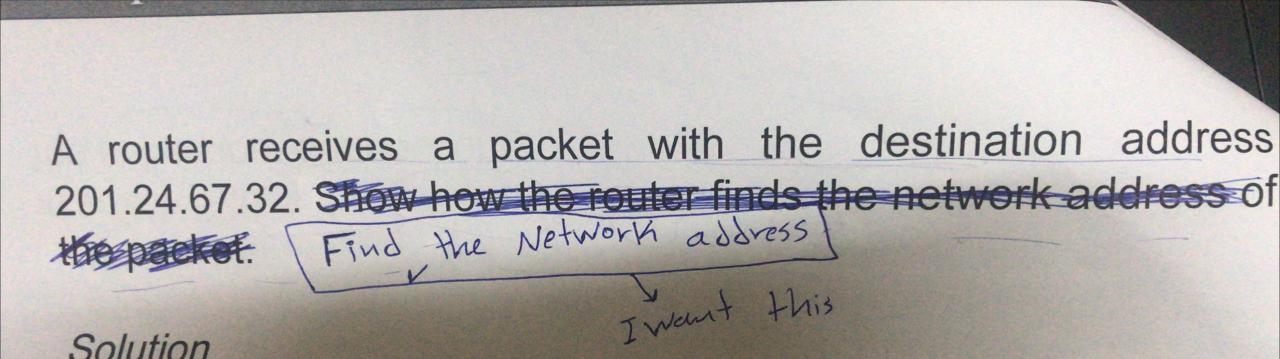 A router receives a packet with the destination address
201.24.67.32. Show how the router finds the network address of
the packet.
Find the Network address
I want this
Solution